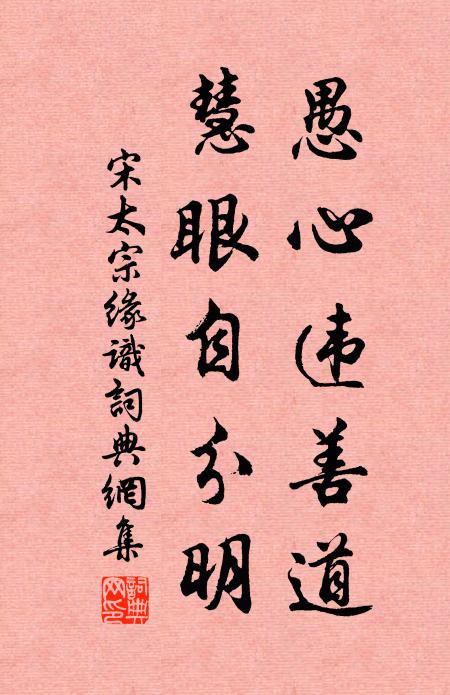 愚心违善道
慧眼自分明
宋太宗緣識詞典網集
詞典
网印